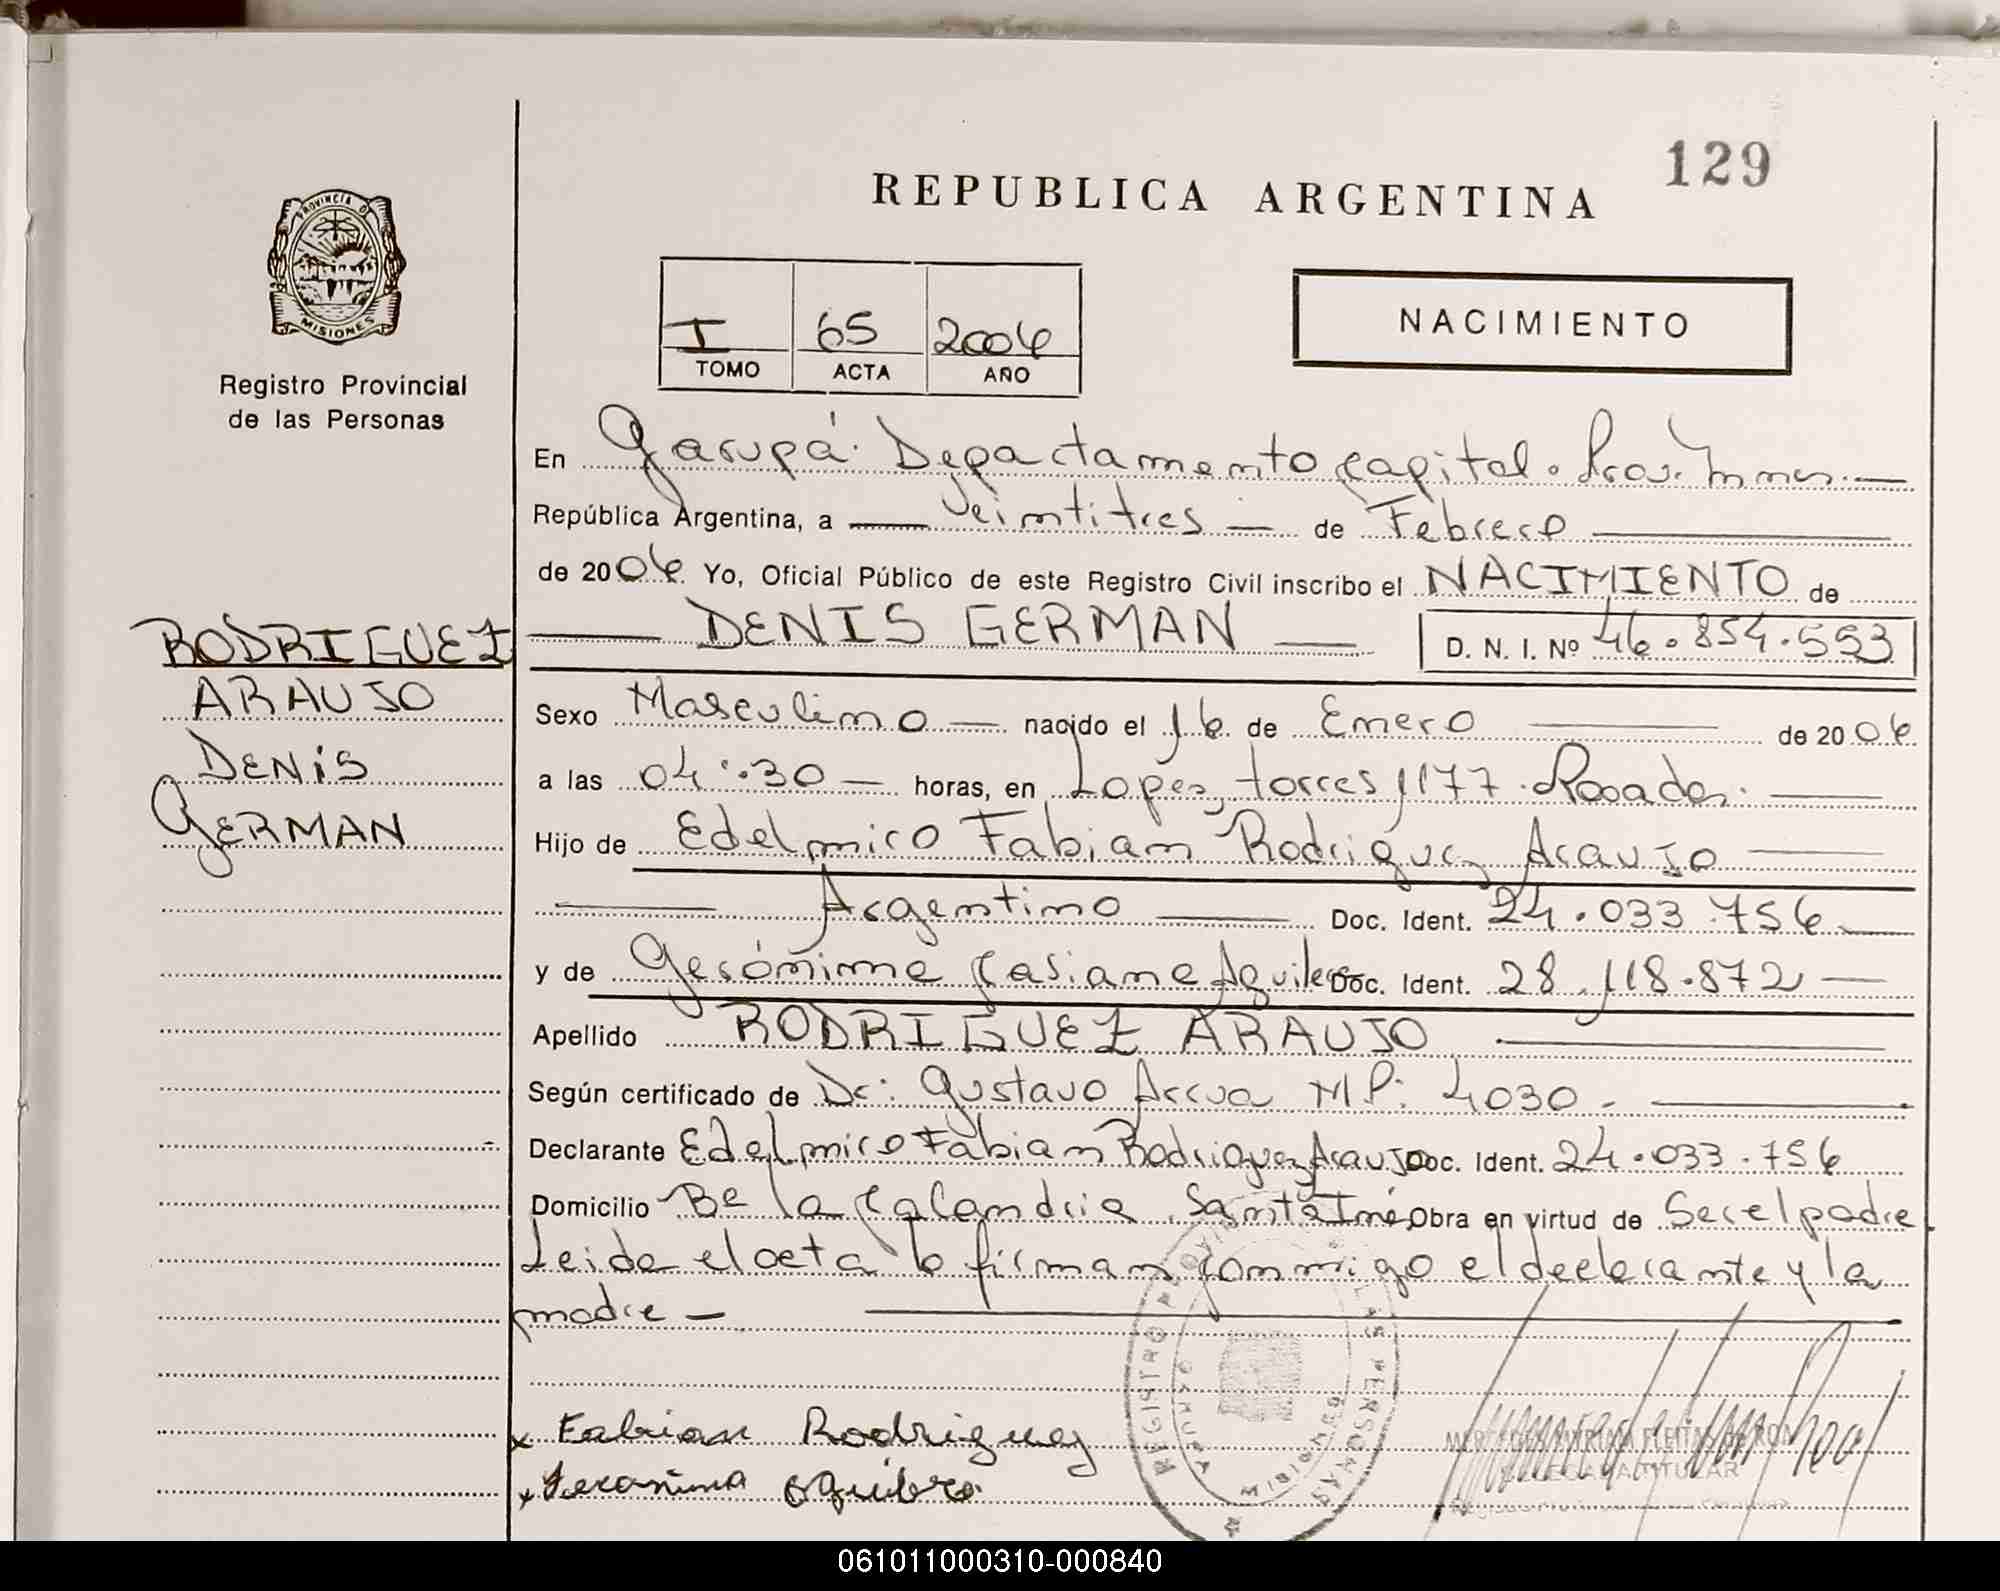 129
REPUBLICA ARGENTINA
PROVINCIA D
MISIONES
Registro Provincial
de las Personas
I 65 2006
TOMO ACTA AÑO
NACIMIENTO
En Garupá. Departamento Capital. Prov. Mnes.
República Argentina, a veintitres de Febrero
de 2006. Yo, Oficial Público de este Registro Civil inscribo el NACIMIENTO de
DENIS GERMAN D. N. I. Nº 46.854.553
RODRIGUEZ
ARAUJO
DENIS
GERMAN
Sexo Masculino nacido el 16 de Enero de 2006
a las 04:30 horas, en Lopez torres 1177. Posadas.
Hijo de Edelmiro Fabian Rodriguez Araujo
Argentino Doc. Ident. 24.033.756
y de Gerónima Casiana Aguilera Doc. Ident. 28.118.872
Apellido RODRIGUEZ ARAUJO
Según certificado de Dr: Gustavo MP: 4030.
Declarante Edelmiro Fabian Rodriguez Araujo Doc. Ident. 24.033.756
Domicilio Bº la Calandria Santa Inés Obra en virtud de Ser el padre
Leida el acta la firman conmigo el declarante y la
madre
Fabian Rodriguez
Geronima Aguilera
REGISTRO PROVINCIAL DE LAS PERSONAS
TITULAR
061011000310-000840